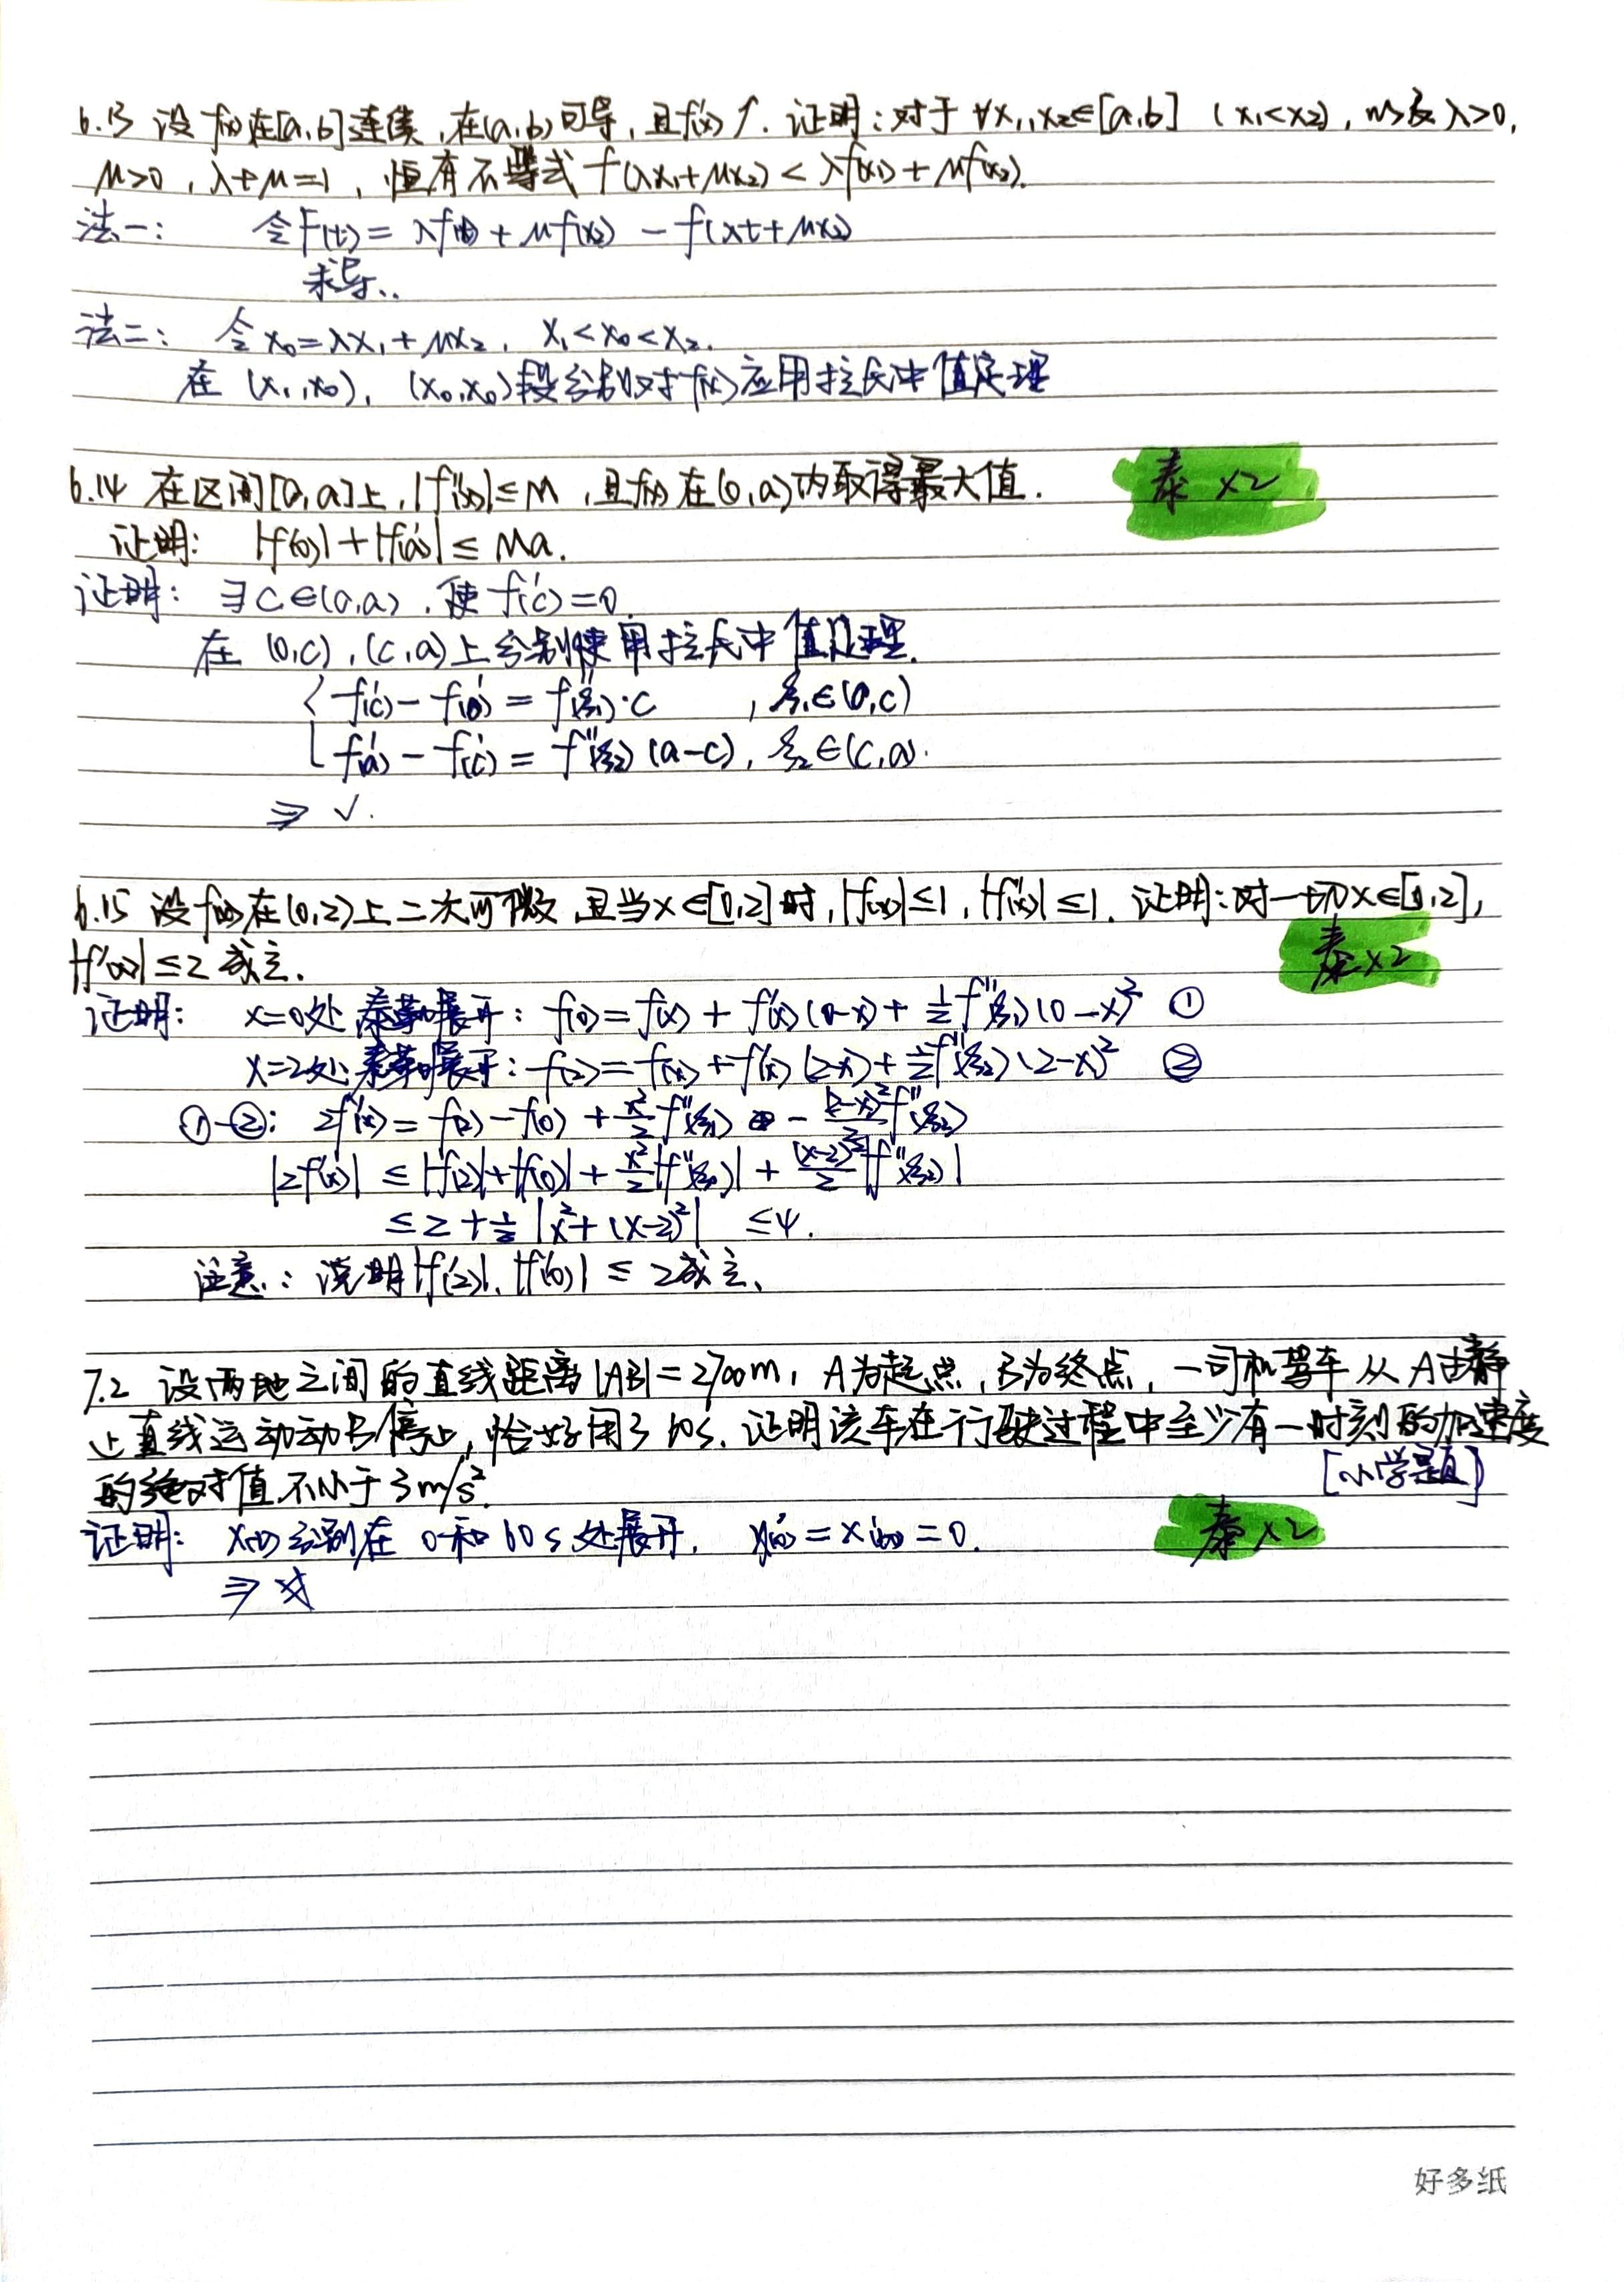 6.13 设f(x)在[a,b]连续,在(a,b)可导,且f'(x)↑. 证明:对于∀x₁,x₂∈[a,b] (x₁<x₂),以及λ>0,
μ>0,λ+μ=1,恒有不等式 f(λx₁+μx₂) < λf(x₁)+μf(x₂).
法一: 令F(t)= λf(t)+μf(x₂) - f(λt+μx₂)
求导..
法二: 令x₀=λx₁+μx₂, x₁<x₀<x₂.
在 (x₁,x₀), (x₀,x₀)段分别对f(x)应用拉氏中值定理
6.14 在区间[0,a]上,|f''(x)|≤M,且f(x)在(0,a)内取得最大值.
泰 ×2
证明: |f'(0)|+|f'(a)| ≤ Ma.
证明: ∃c∈(0,a),使f'(c)=0.
在 (0,c),(c,a)上分别使用拉氏中值定理.
{ f'(c) - f'(0) = f''(ξ₁)·c ,ξ₁∈(0,c)
f'(a) - f'(c) = f''(ξ₂)(a-c), ξ₂∈(c,a).
⇒ √.
6.15 设f(x)在(0,2)上二次可微,且当x∈[0,2]时,|f(x)|≤1,|f''(x)|≤1. 证明:对一切x∈[0,2],
|f'(x)|≤2 成立.
泰×2
证明: x=0处泰勒展开: f(0)=f(x)+f'(x)(0-x)+½f''(ξ₁)(0-x)² ①
x=2处泰勒展开: f(2)=f(x)+f'(x)(2-x)+½f''(ξ₂)(2-x)² ②
①-②: 2f'(x)=f(2)-f(0)+x²/2 f''(ξ₁) - (2-x)²/2 f''(ξ₂)
|2f'(x)| ≤ |f(2)|+|f(0)|+x²/2|f''(ξ₁)|+(x-2)²/2|f''(ξ₂)|
≤ 2+½|x²+(x-2)²| ≤4.
注意:说明|f'(2)|,|f'(0)| ≤ 2成立、
7.2 设两地之间的直线距离|AB|=2700m, A为起点,B为终点,一司机驾车从A由静
止直线运动动B停止,恰好用了60s. 证明该车在行驶过程中至少有一时刻的加速度
的绝对值不小于3m/s².
[小学题]
证明: x(t)分别在0和60s处展开, x'(0)=x'(60)=0.
泰×2
⇒ 对
好多纸